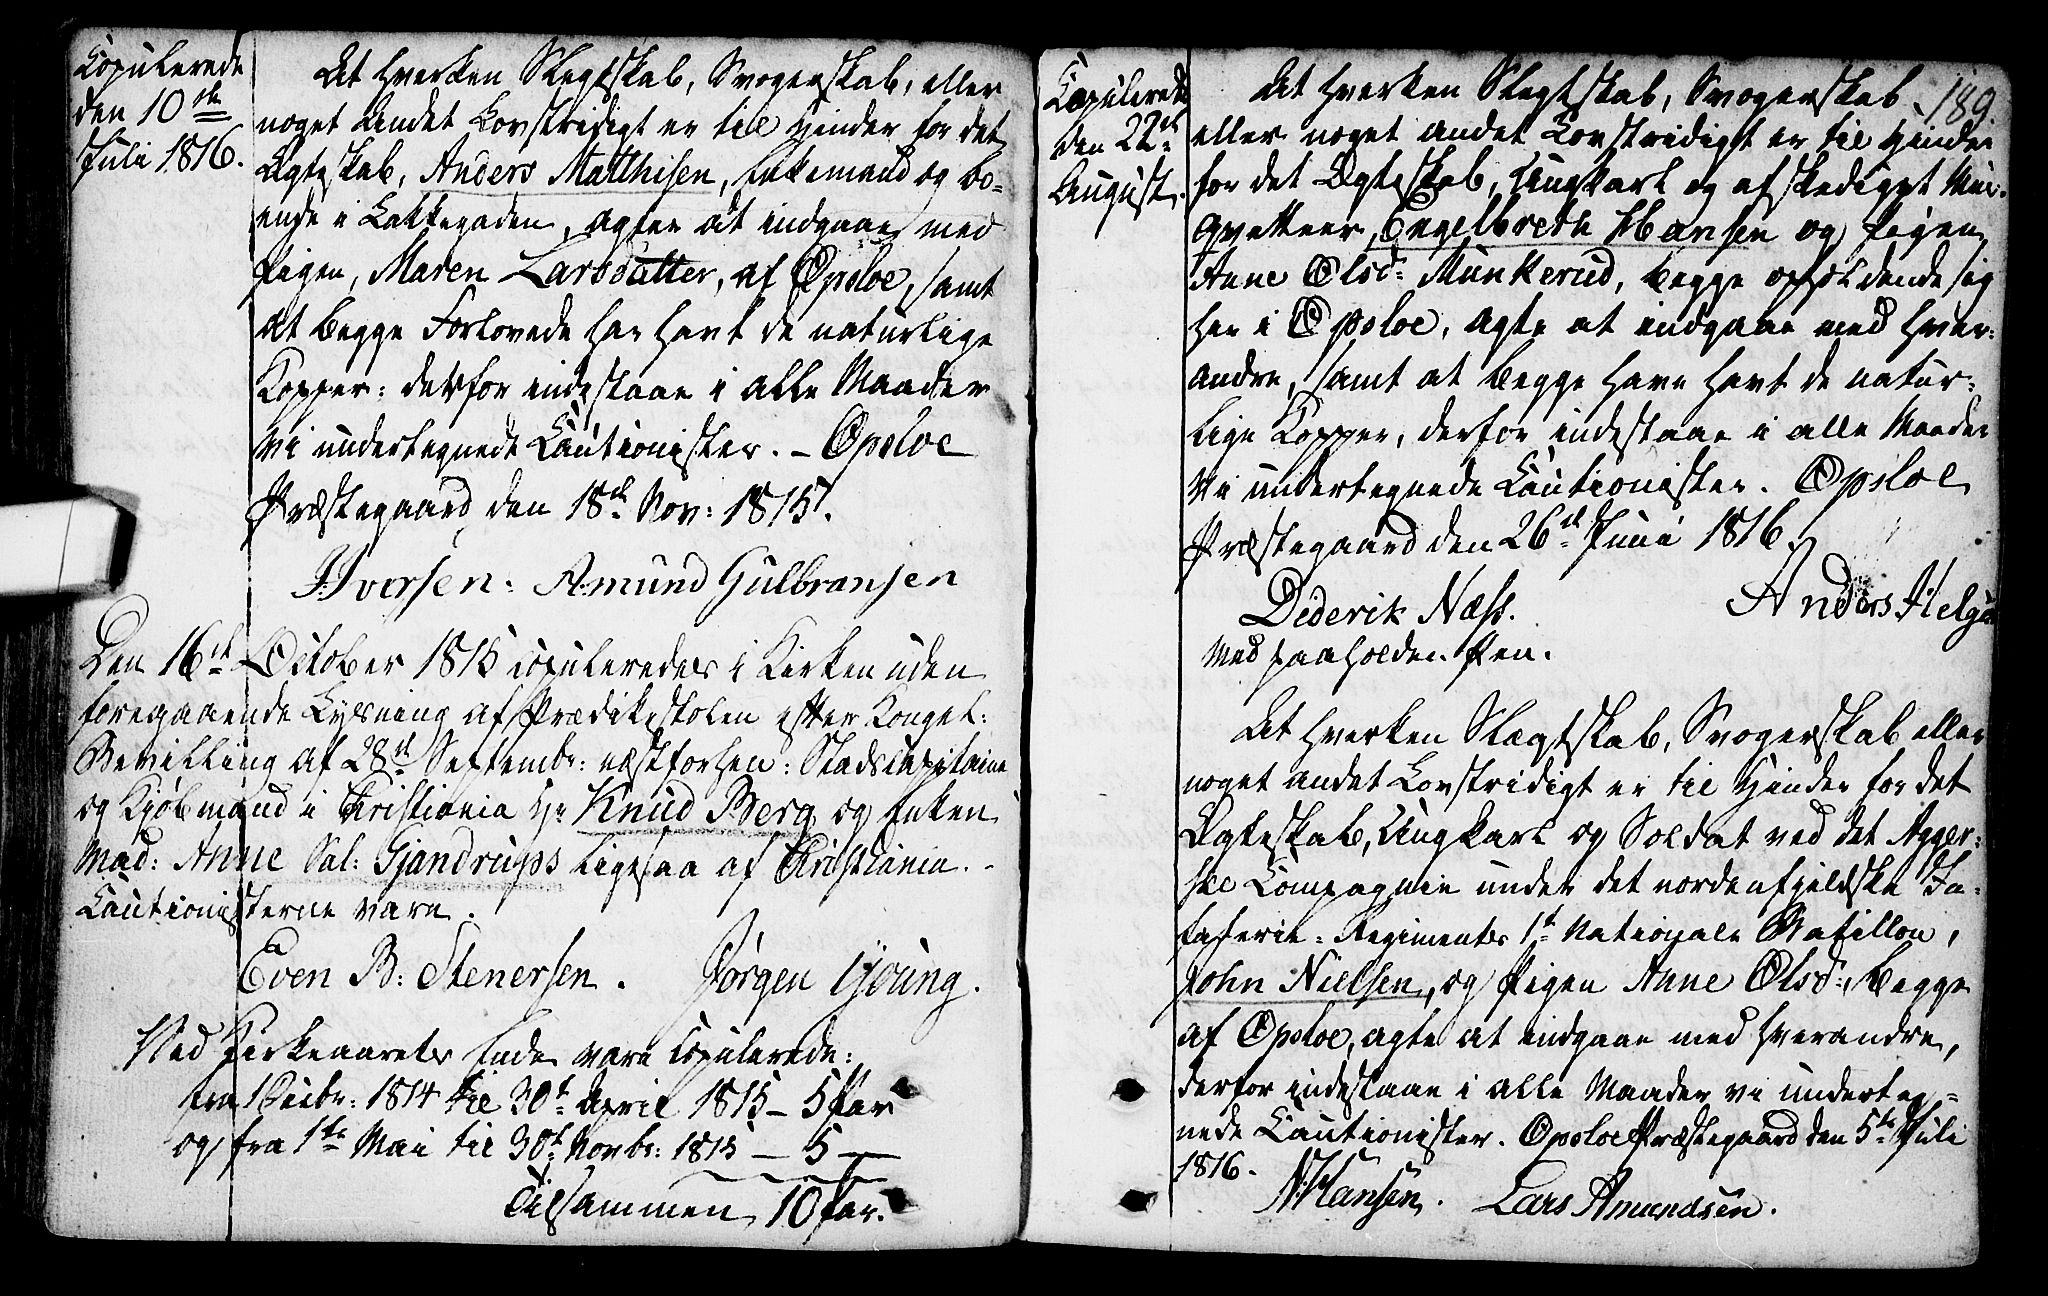 Copulerede
den 10de
Juli 1816.
At hverken Slegtskab, Svogerskab, eller
noget Andet Lovstridigt er til Hinder for det
Ægteskab, Anders Matthisen, Enkemand og bo-
ende i Lakkegaden, agter at indgaae med
Pigen, Maren Larsdatter, af Opsloe, samt
at begge Forlovede har havt de naturlige
Kopper: derfor indestaae i alle Maader
vi undertegnede Cautionister. – Opsloe
Præstegaard, den 18de Nov: 1815.
J. Iversen: Amund Gulbransen
Den 16de October 1815 copuleredes i Kirken uden
foregaaende Lysning af Prædikestolen efter Kongel:
Bevilling af 28de Septembr: næstforhen: Stadscapitaine
og Kjøbmand i Christiania Hr Knud Berg og Enken
Mad: Anne Sal: Gjandrups ligesaa af Christiania. -
Cautionisterne vare.
Even B: Stenersen. Jørgen Young.
Ved Kirkeaarets Ende vare copulerede:
fra 1 Decbr: 1814 til 30te April 1815 – 5 Par
og fra 1ste Mai til 30te Novbr: 1815 – 5 –
Tilsammen 10 Par.
189.
Copulerede
den 22de
August.
At hverken Slegtskab, Svogerskab
eller noget andet Lovstridigt er til Hinder
for det Ægteskab, Ungkarl og afskediget Mus-
qvetteer, Engelbreth Hansen og Pigen
Anne Olsd: Munkerud, begge opholdende sig
her i Opsloe, agte at indgaae med hver-
andre, samt at begge have havt de natur-
lige Kopper, derfor indestaae i alle Maader
vi undertegnede Cautionister. Opsloe
Præstegaard den 26de Juni 1816.
Dederik Næss. Anders Helge
med paaholden Pen.
At hverken Slægtskab, Svogerskab eller
noget andet Lovstridigt er til Hinder for det
Ægteskab, Ungkarl og Soldat ved det Agger-
ske Compagnie under det nordenfjeldske In-
fanterie-Regiments 1ste Nationale Bataillon,
John Nielsen, og Pigen Anne Olsd:, begge
af Opsloe, agte at indgaae med hverandre,
derfor indestaae i alle Maader vi underteg-
nede Cautionister. Opsloe Præstegaard den 5te Juli
1816.
N. Hansen. Lars Amundsen.